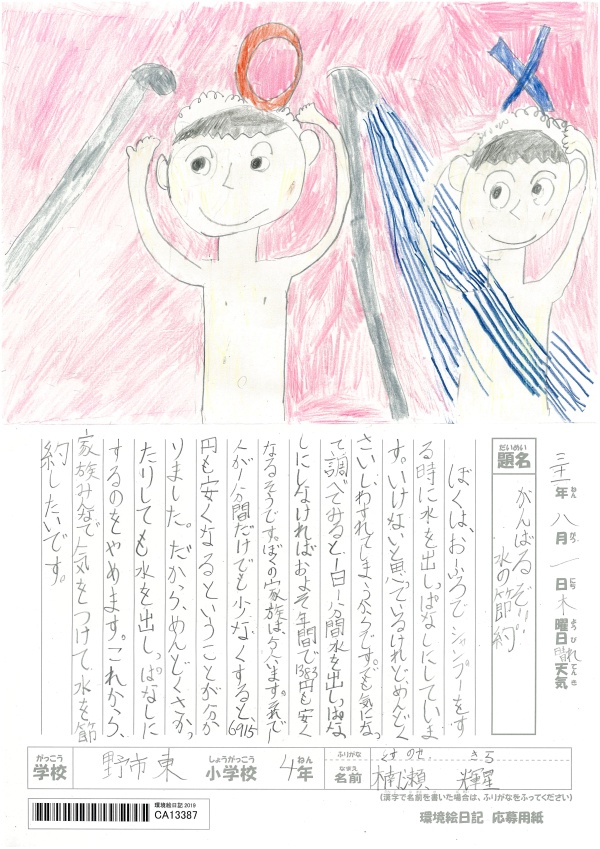 だいめい
題名
がんばるぞ!!
水の節約
三十一年ねん八月がつ一日にち木曜日ようび晴れ天気てんき
ぼくは、おふろでシャンプーをす
る時に水を出しっぱなしにしていま
す。いけないと思っているけれど、めんどく
さいし、わすれてしまうからです。でも気になっ
て調べてみると一日一分間水を出しっぱな
しにしなければおよそ年間で1383円も安く
なるそうです。ぼくの家族は、5人います。それで一
人が1分間だけでも少なくすると、6915
円も安くなるということが分か
りました。だから、めんどくさかっ
たりしても水を出しっぱなしに
するのをやめます。これから、
家族みんなで気をつけて水を節
約したいです。
がっこう
学校
野市東
しょうがっこう
小学校
4年ねん
ふりがな
くすのせ きら
なまえ
名前
楠瀬 輝星
(漢字で名前を書いた場合は、ふりがなをふってください)
環境絵日記 応募用紙
環境絵日記 2019
CA13387